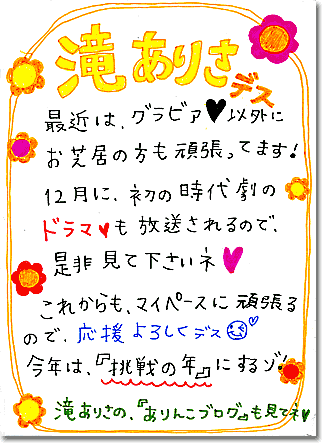 滝ありさデス
最近は、グラビア♥以外に
お芝居の方も頑張ってます!
12月に、初の時代劇の
ドラマ♥も放送されるので、
是非見て下さいネ♥
これからも、マイペースに頑張る
ので、応援よろしくデス
今年は、『挑戦の年』にするゾ!
滝ありさの、『ありんこブログ』も見てネ♥